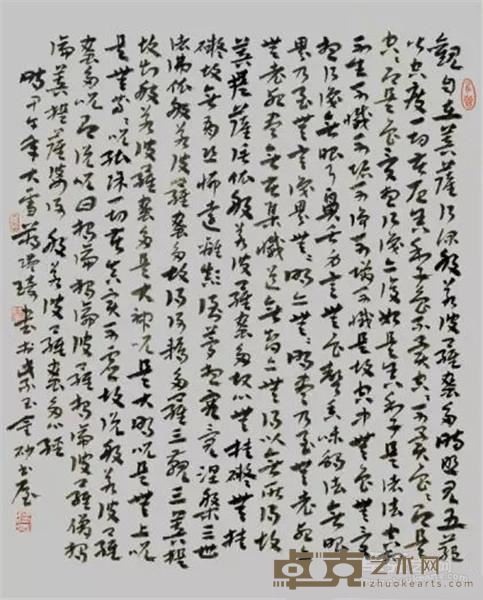 觀自在菩薩行深般若波羅蜜多時照見五蘊
皆空度一切苦厄舍利子色不異空空不異色色即是
空空即是色受想行識亦復如是舍利子是諸法空相
不生不滅不垢不淨不增不減是故空中無色無受
想行識無眼耳鼻舌身意無色聲香味觸法無眼
界乃至無意識界無無明亦無無明盡乃至無老死亦
無老死盡無苦集滅道無智亦無得以無所得故
菩提薩埵依般若波羅蜜多故心無罣礙無罣
礙故無有恐怖遠離顛倒夢想究竟涅槃三世
諸佛依般若波羅蜜多故得阿耨多羅三藐三菩提
故知般若波羅蜜多是大神咒是大明咒是無上咒
是無等等咒能除一切苦真實不虛故說般若波羅
蜜多咒即說咒曰揭諦揭諦波羅揭諦波羅僧揭
諦菩提薩婆訶 般若波羅蜜多心經
時甲午年大雪瑞琦書於紫玉金砂書屋
卓克艺术网
zhuokearts.com